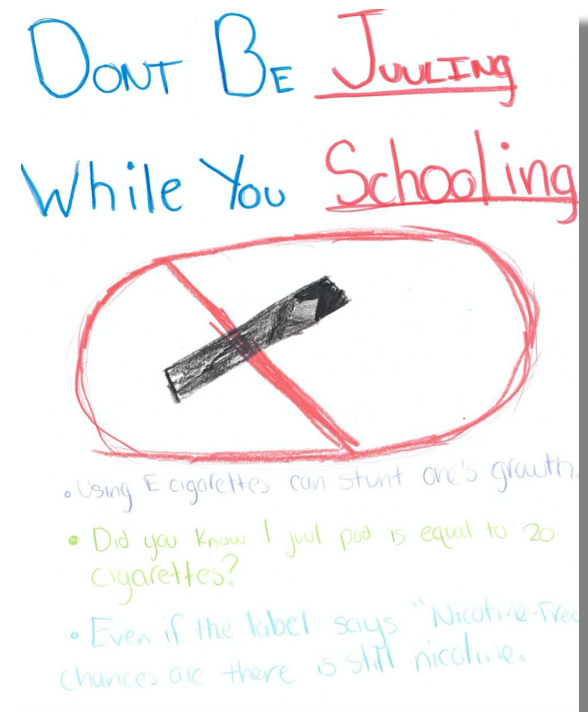 DONT BE JUULING
While You Schooling
• Using E cigarettes can stunt one's growth.
• Did you know 1 juul pod is equal to 20
cigarettes?
• Even if the label says "Nicotine-Free
chances are there is still nicotine.